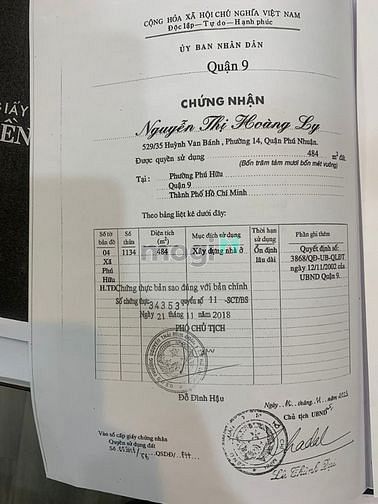 GIẤY
CỘNG HÒA XÃ HỘI CHỦ NGHĨA VIỆT NAM
Độc lập – Tự do – Hạnh phúc
ỦY BAN NHÂN DÂN
Quận 9
CHỨNG NHẬN
Nguyễn Thị Hoàng Ly
529/35 Huỳnh Văn Bánh, Phường 14, Quận Phú Nhuận.
Được quyền sử dụng 484 m² đất.
(Bốn trăm tám mươi bốn mét vuông)
Tại : Phường Phú Hữu
Quận 9
Thành Phố Hồ Chí Minh
Theo bảng liệt kê dưới đây:
Số tờ bản đồ Số thửa Diện tích (m²) Mục đích sử dụng Thời hạn sử dụng Phần ghi thêm
04 1134 484 Xây dựng nhà ở Ổn định lâu dài Quyết định số:
Xã 3868/QĐ-UB-QLĐT
Phú ngày 12/11/2002 của
Hữu UBND Quận 9.
mogi
H.TĐ Chứng thực bản sao đúng với bản chính
Số chứng thực 34353 quyển số 11 -SCT/BS
Ngày 21 tháng 11 năm 2018
PHÓ CHỦ TỊCH
Đỗ Đình Hậu
Chủ tịch UBND
Vào sổ cấp giấy chứng nhận
Quyền sử dụng đất